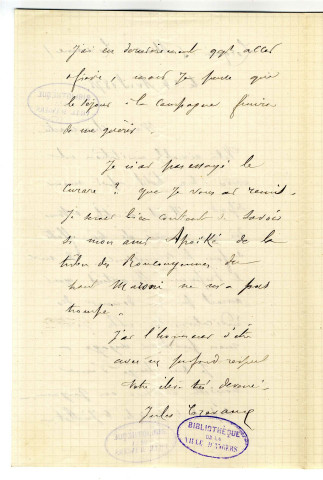 J'ai eu dernièrement qqs. accès
de fièvre, mais je pense que
le séjour à la campagne finira
de me guérir.
Je n'ai pas essayé le
curare ? que je vous ai remis.
Je serais bien content de savoir
si mon ami Apoïké de la
tribu des Roucouyennes du
haut Maroni ne m'a pas
trompé.
J'ai l'honneur d'être
avec un profond respect
votre élève très dévoué.
Jules Crevaux
BIBLIOTHÈQUE
DE LA
VILLE D'ANGERS